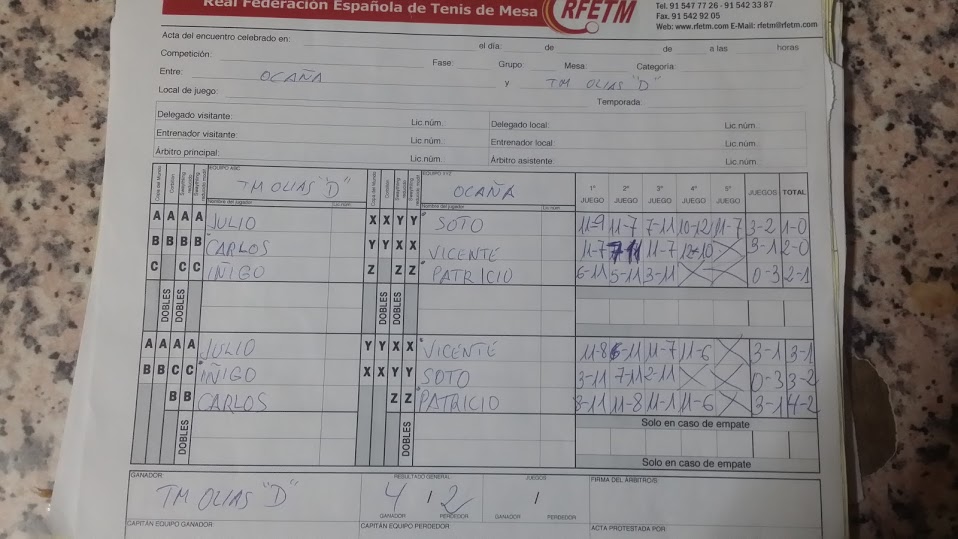 Real Federación Española de Tenis de Mesa
RFETM
Tel. 91 547 77 26 - 91 542 33 87
Fax. 91 542 92 05
Web: www.rfetm.com E-Mail: rfetm@rfetm.com
Acta del encuentro celebrado en: el día: de de a las horas
Competición: Fase: Grupo: Mesa: Categoría:
Entre: OCAÑA y TM OLIAS "D"
Local de juego: Temporada:
Delegado visitante: Lic.núm. Delegado local: Lic.núm.
Entrenador visitante: Lic.núm. Entrenador local: Lic.núm.
Árbitro principal: Lic.núm. Árbitro asistente: Lic.núm.
EQUIPO ABC TM OLIAS "D" EQUIPO XYZ OCAÑA 1º JUEGO 2º JUEGO 3º JUEGO 4º JUEGO 5º JUEGO JUEGOS TOTAL
Nombre del jugador Lic.núm. Nombre del jugador Lic.núm.
A A A A JULIO X X Y Y SOTO 11-9 11-7 7-11 10-12 11-7 3-2 1-0
B B B B CARLOS Y Y X X VICENTE 11-7 7-11 11-7 12-10 3-1 2-0
C C C IÑIGO Z Z Z PATRICIO 6-11 5-11 3-11 0-3 2-1
DOBLES DOBLES DOBLES DOBLES
A A A A JULIO Y Y X X VICENTE 11-8 6-11 11-7 11-6 3-1 3-1
B B C C IÑIGO X X Y Y SOTO 3-11 7-11 2-11 0-3 3-2
B B CARLOS Z Z PATRICIO 8-11 11-8 11-1 11-6 3-1 4-2
DOBLES DOBLES Solo en caso de empate
Solo en caso de empate
GANADOR: RESULTADO GENERAL JUEGOS FIRMA DEL ÁRBITRO/S
TM OLIAS "D" 4 / 2 /
GANADOR PERDEDOR GANADOR PERDEDOR
CAPITÁN EQUIPO GANADOR CAPITÁN EQUIPO PERDEDOR ACTA PROTESTADA POR